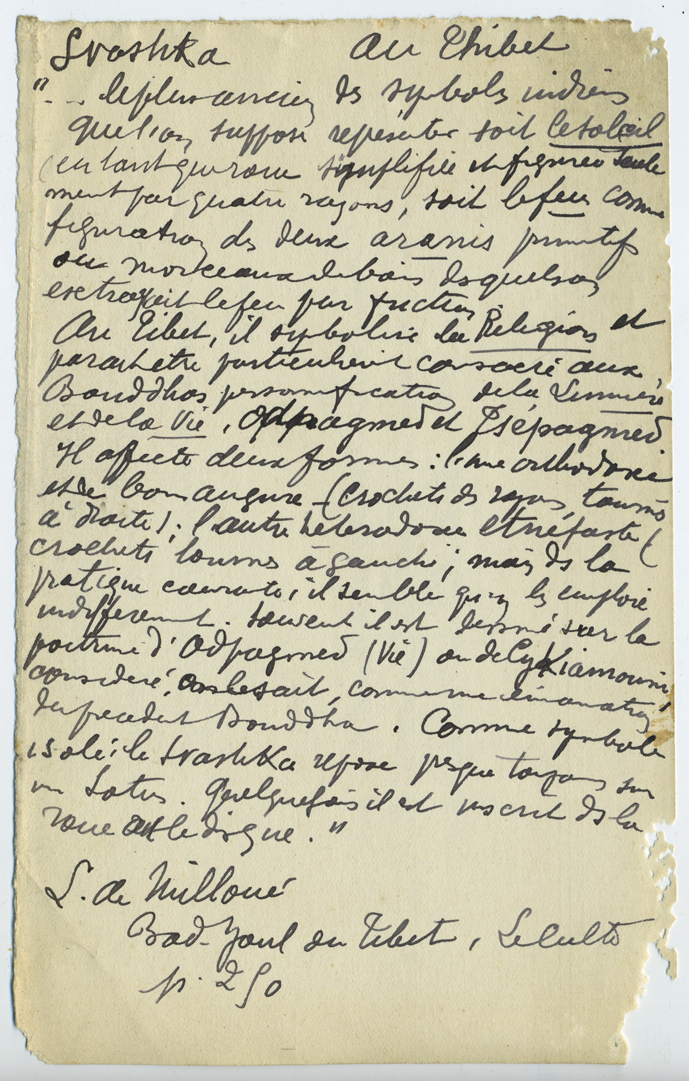 Svastika Au Thibet
"... le plus ancien des symboles indiens
que l'on suppose représenter soit le soleil
(en tant que roue simplifiée et figurée seule
ment par quatre rayons, soit le feu comme
figuration des deux aranis primitifs
ou morceaux de bois desquels on
extrayait le feu par friction. et
Au Tibet, il symbolise la Religion
parait être particulièrement consacré aux
Bouddhas personnification de la Lumière
et de la Vie, Odpagmed et Tsépagmed
Il affecte deux formes : l'une orthodoxe
et de bon augure (crochets des rayons tournés
à droite) ; l'autre hétérodoxe et néfaste (
crochets tournés à gauche ; mais ds la
pratique courante, il semble qu'on les emploie
indifféremment. Souvent il est dessiné sur la
poitrine d'Odpagmed (Vie) ou de Çakiamouni,
considéré, on le sait, comme une émanation
du précédent Bouddha. Comme symbole
isolé : le Svastika repose presque toujours sur
un Lotus. Quelquefois il est inscrit ds la
roue ou le disque."
L. de Milloué
Bod-Youl ou Tibet, Le culte
p. 250